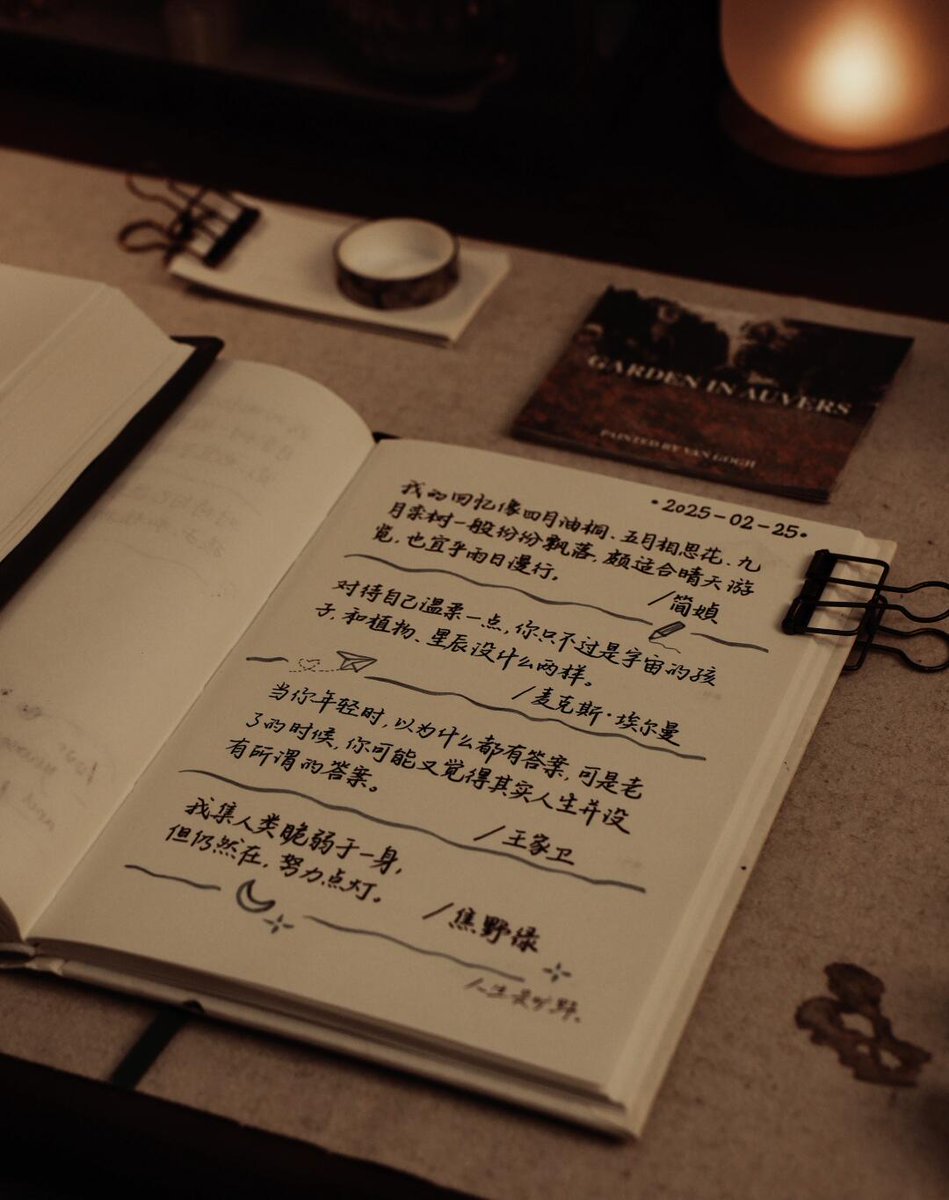 GARDEN IN AUVERS
PAINTED BY VAN GOGH
•2025-02-25•
我的回忆像四月油桐、五月相思花、九
月栾树一般纷纷飘落,颇适合晴天游
览,也宜乎雨日漫行。
/简媜
对待自己温柔一点,你只不过是宇宙的孩
子,和植物、星辰没什么两样。
/麦克斯·埃尔曼
当你年轻时,以为什么都有答案,可是老
了的时候,你可能又觉得其实人生并没
有所谓的答案。
/王家卫
我集人类脆弱于一身,
但仍然在,努力点灯。
/焦野绿
人生是旷野、